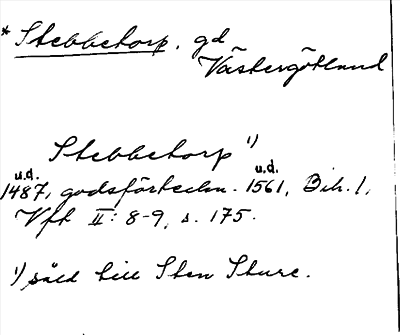 * Stebbetorp. gd
Västergötland
Stebbetorp 1)
u.d. u.d.
1487, godsförteckn. 1561, Bih. 1,
Vft II: 8-9, s. 175.
1) såld till Sten Sture.